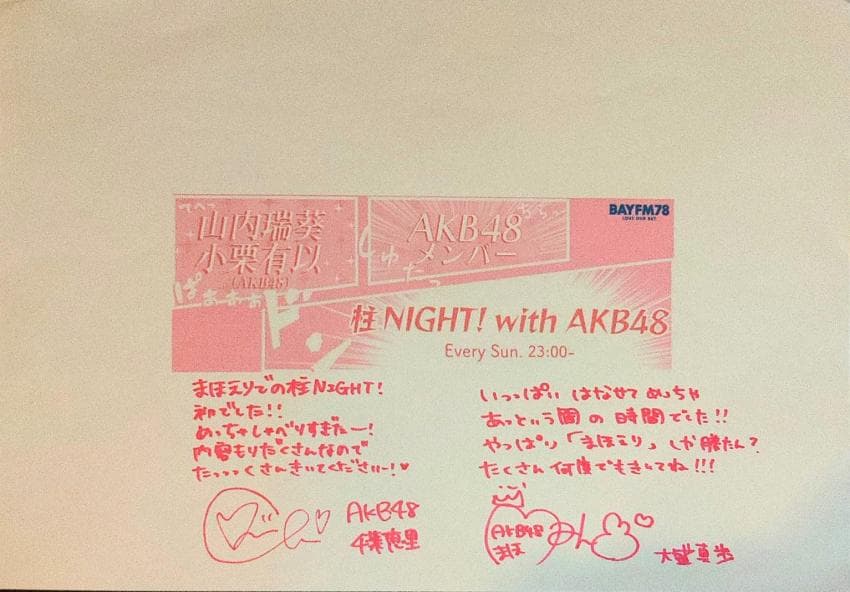 てへっ
山内瑞葵
小栗有以
(AKB48)
ぱぁーぁぁ
AKB48
メンバー
しゅたっ
BAYFM78
LOVE OUR BAY
柱NIGHT! with AKB48
Every Sun. 23:00-
まほえりでの柱NIGHT!
初でした!!
めっちゃしゃべりすぎたー!
内容もりだくさんなので
たっっっくさんきいてくださいー!♥
AKB48
千葉恵里
いっっぱい はなせて めっちゃ
あっという間の時間でした!!
やっぱり「まほえり」しか勝たん?
たくさん何度でもきいてね!!!
AKB48
まほ
大盛真歩